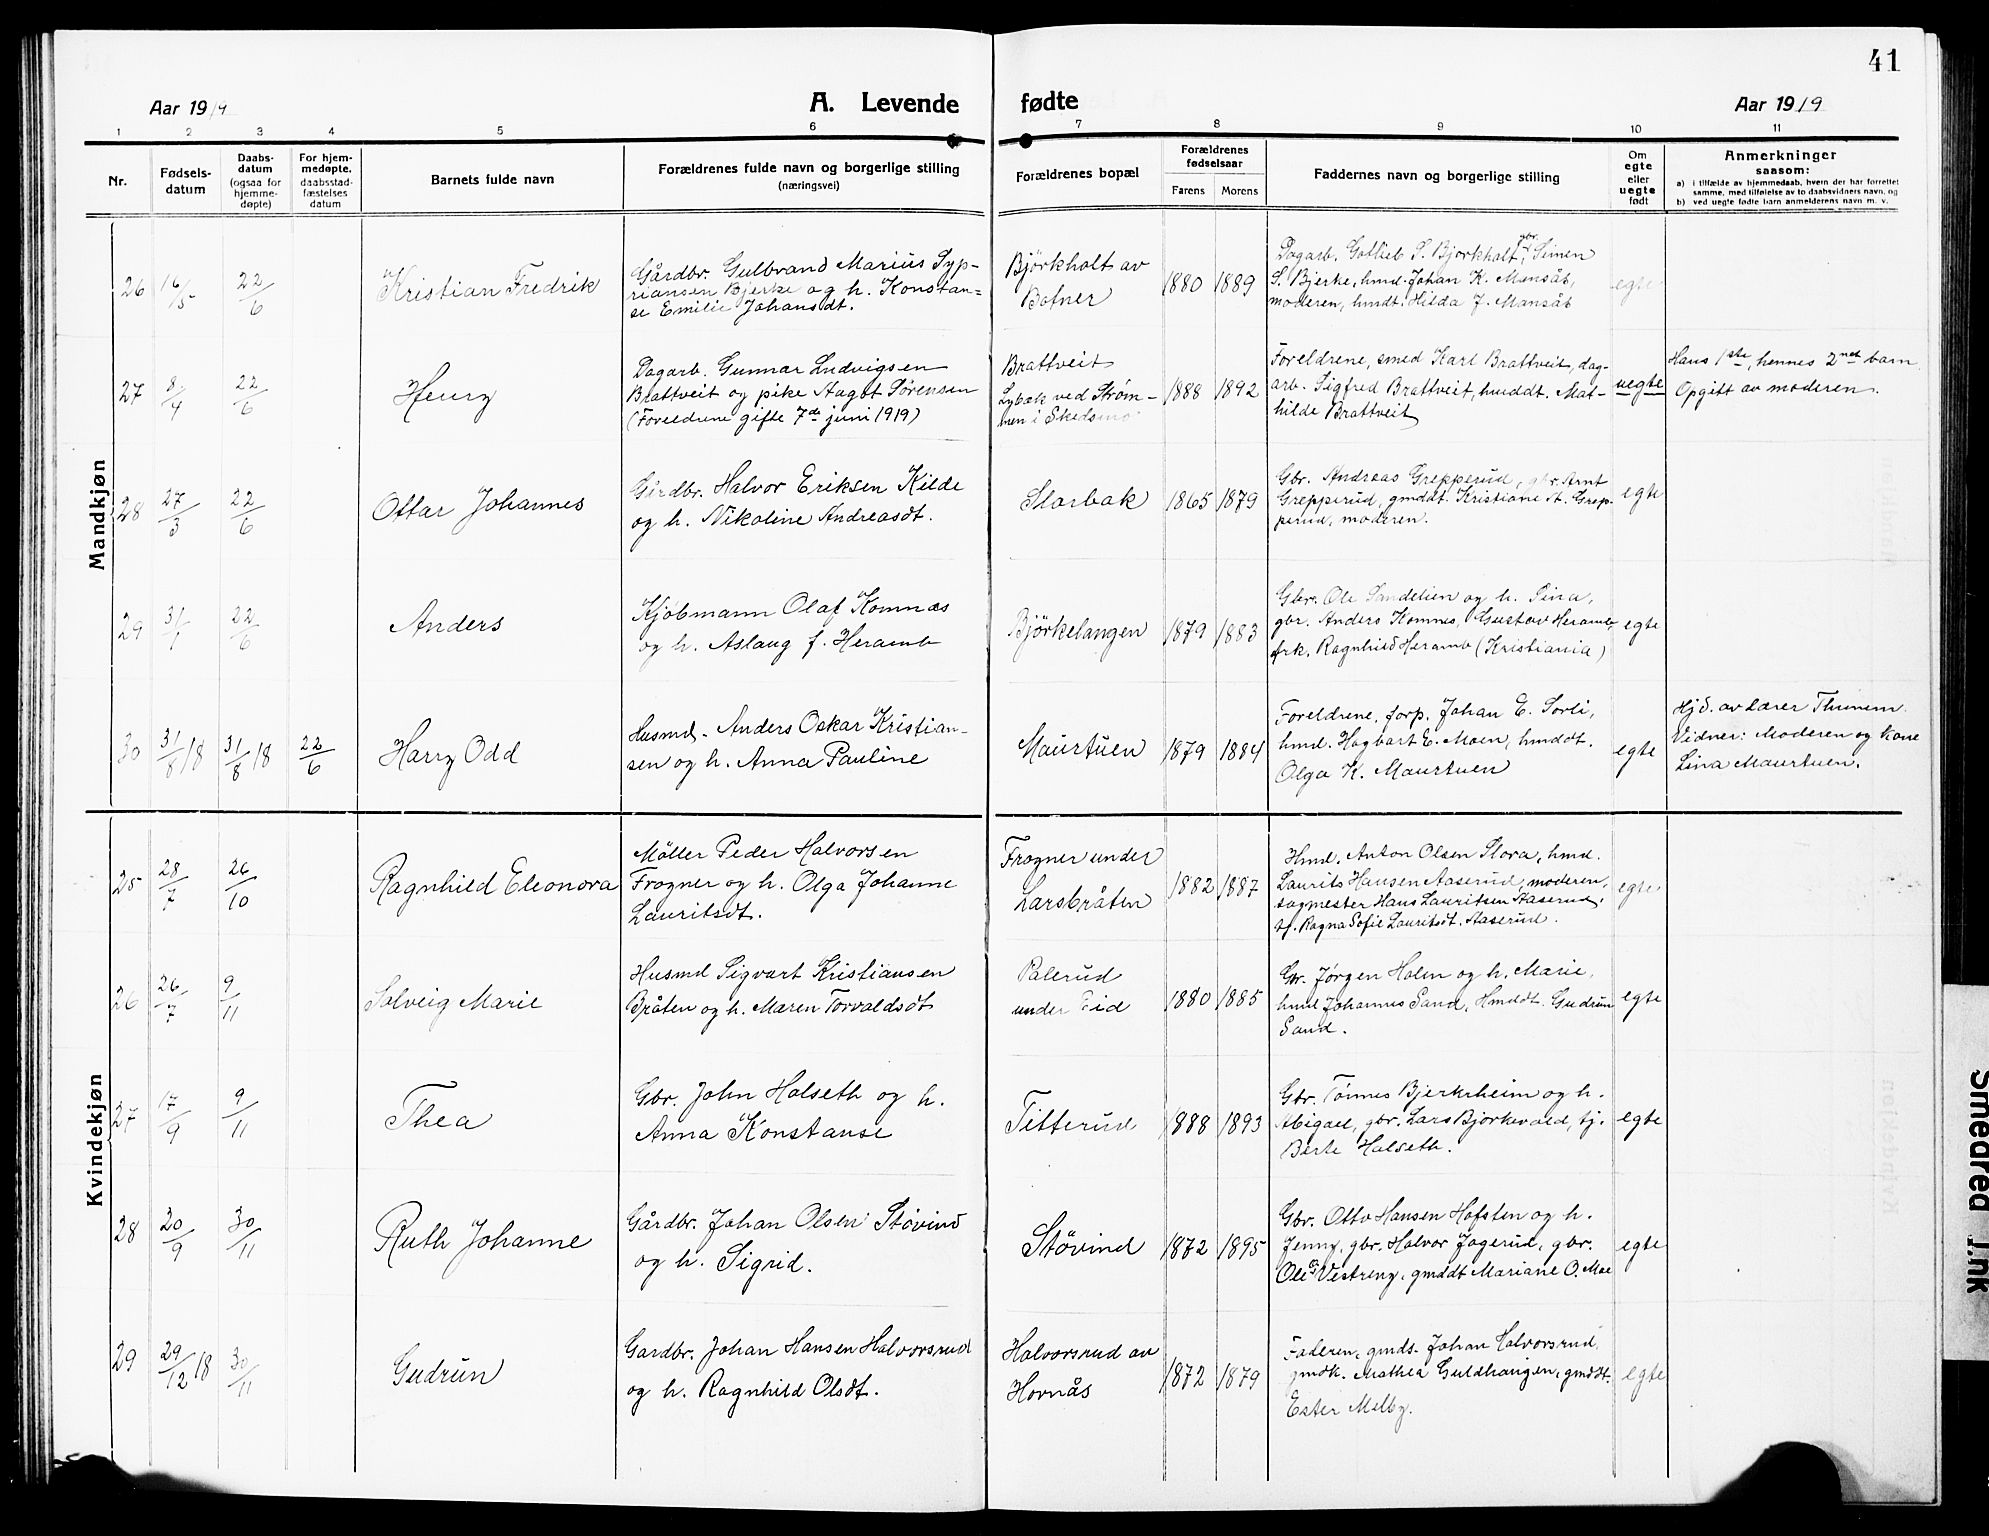 41
Aar 1919
A. Levende fødte
Aar 1919
1 2 3 4 5 6 7 8 9 10 11
Nr.
Fødsels-
datum
Daabs-
datum
(ogsaa for
hjemme-
døpte)
For hjem-
medøpte.
daabsstad-
fæstelses
datum
Barnets fulde navn
Forældrenes fulde navn og borgerlige stilling
(næringsvei)
Forældrenes bopæl
Forældrenes
fødselsaar
Farens Morens
Faddernes navn og borgerlige stilling
Om
egte
eller
uegte
født
Anmerkninger
saasom:
a) i tilfælde av hjemmedaab, hvem der har forrettet
samme, med tilføielse av to daabsvidners navn, og
b) ved uegte fødte barn anmelderens navn m. v.
Mandkjøn
26 16/5 22/6 Kristian Fredrik
Gårdbr. Gulbrand Marius Syp-
riansen Bjerke og h. Konstan=
se Emilie Johansdt.
Björkholt av
Botner
1880 1889
Dagarb. Gotlieb S. Bjorkholt, gbr. Simen
S. Bjerke, hmd. Johan K. Mansåt,
moderen, hmdt. Hilda J. Mansåt
egte
27 8/4 22/6 Henry
Dagarb. Gunnar Ludvigsen
Brattveit og pike Aagot Sørensen
(Foreldrene gifte 7de juni 1919)
Brattveit
Lybæk ved Strøm-
men i Skedsmo
1888 1892
Foreldrene, smed Karl Brattveit, dag-
arb. Sigfred Brattveit, hmddt. Mat-
hilde Brattveit
uegte
Hans 1ste, hennes 2net barn
Opgitt av moderen.
28 27/3 22/6 Ottar Johannes
Gårdbr. Halvor Eriksen Kilde
og h. Nikoline Andreasdt.
Slorbak
1865 1879
Gbr. Andreas Grepperud, gbr. Arnt
Grepperud, gmddt. Kristiane A. Grep-
perud, moderen.
egte
29 31/1 22/6 Anders
Kjöbmann Olaf Komnæs
og h. Aslaug f. Heramb
Björkelangen
1879 1883
Gbr. Ole Sandelien og h. Sina,
gbr. Anders Komnes, Gustav Heramb,
frk. Ragnhild Heramb (Kristiania)
egte
30 31/8 18 31/8 18 22/6 Harry Odd
Husmd. Anders Oskar Kristian-
sen og h. Anna Pauline
Maurtuen
1879 1884
Foreldrene, forp. Johan E. Sorli,
hmd. Hagbart E. Moen, hmddt.
Olga K. Maurtuen
egte
Hjd. av lærer
Vidner: Moderen og kone
Lina Maurtuen.
Kvindekjøn
25 28/7 26/10 Ragnhild Eleonora
Möller Peder Halvorsen
Frogner og h. Olga Johanne
Lauritsdt.
Frogner under
Larsbråten
1882 1887
Hmd. Anton Olsen Slora, hmd.
Laurits Hansen Aaserud, moderen,
sagmester Hans Lauritsen Aaserud,
tj. Ragna Sofie Lauritsdt. Aaserud.
egte
26 26/7 9/11 Solveig Marie
Husmd Sigvart Kristiansen
Bråten og h. Maren Torvaldsdt
Palerud
under Eid
1880 1885
Gbr. Jørgen Holm og h. Marie,
hmd Johannes Sand, Hmddt. Gudrun
Sand.
egte
27 17/9 9/11 Thea
Gbr. John Halseth og h.
Anna Konstanse
Titterud
1888 1893
Gbr. Tönnes Bjerkrheim og h.
Abigael, gbr. Lars Bjorkevold, tj.
Berte Halseth.
egte
28 20/9 30/11 Ruth Johanne
Gårdbr. Johan Olsen Stövind
og h. Sigrid.
Stövind
1872 1895
Gbr. Otto Hansen Hofsten og h.
Jenny, gbr. Halvor Jogerud, gbr.
Ole Vestreng, gmddt Mariane O. Moe
egte
29 29/12 18 30/11 Gudrun
Gardbr. Johan Hansen Halvorsrud
og h. Ragnhild Olsdt.
Halvorsrud av
Hornås
1872 1879
Faderen, gmds. Johan Halvorsrud,
gmdk. Mathea Guldhaugen, gmddt.
Ester Melby.
egte